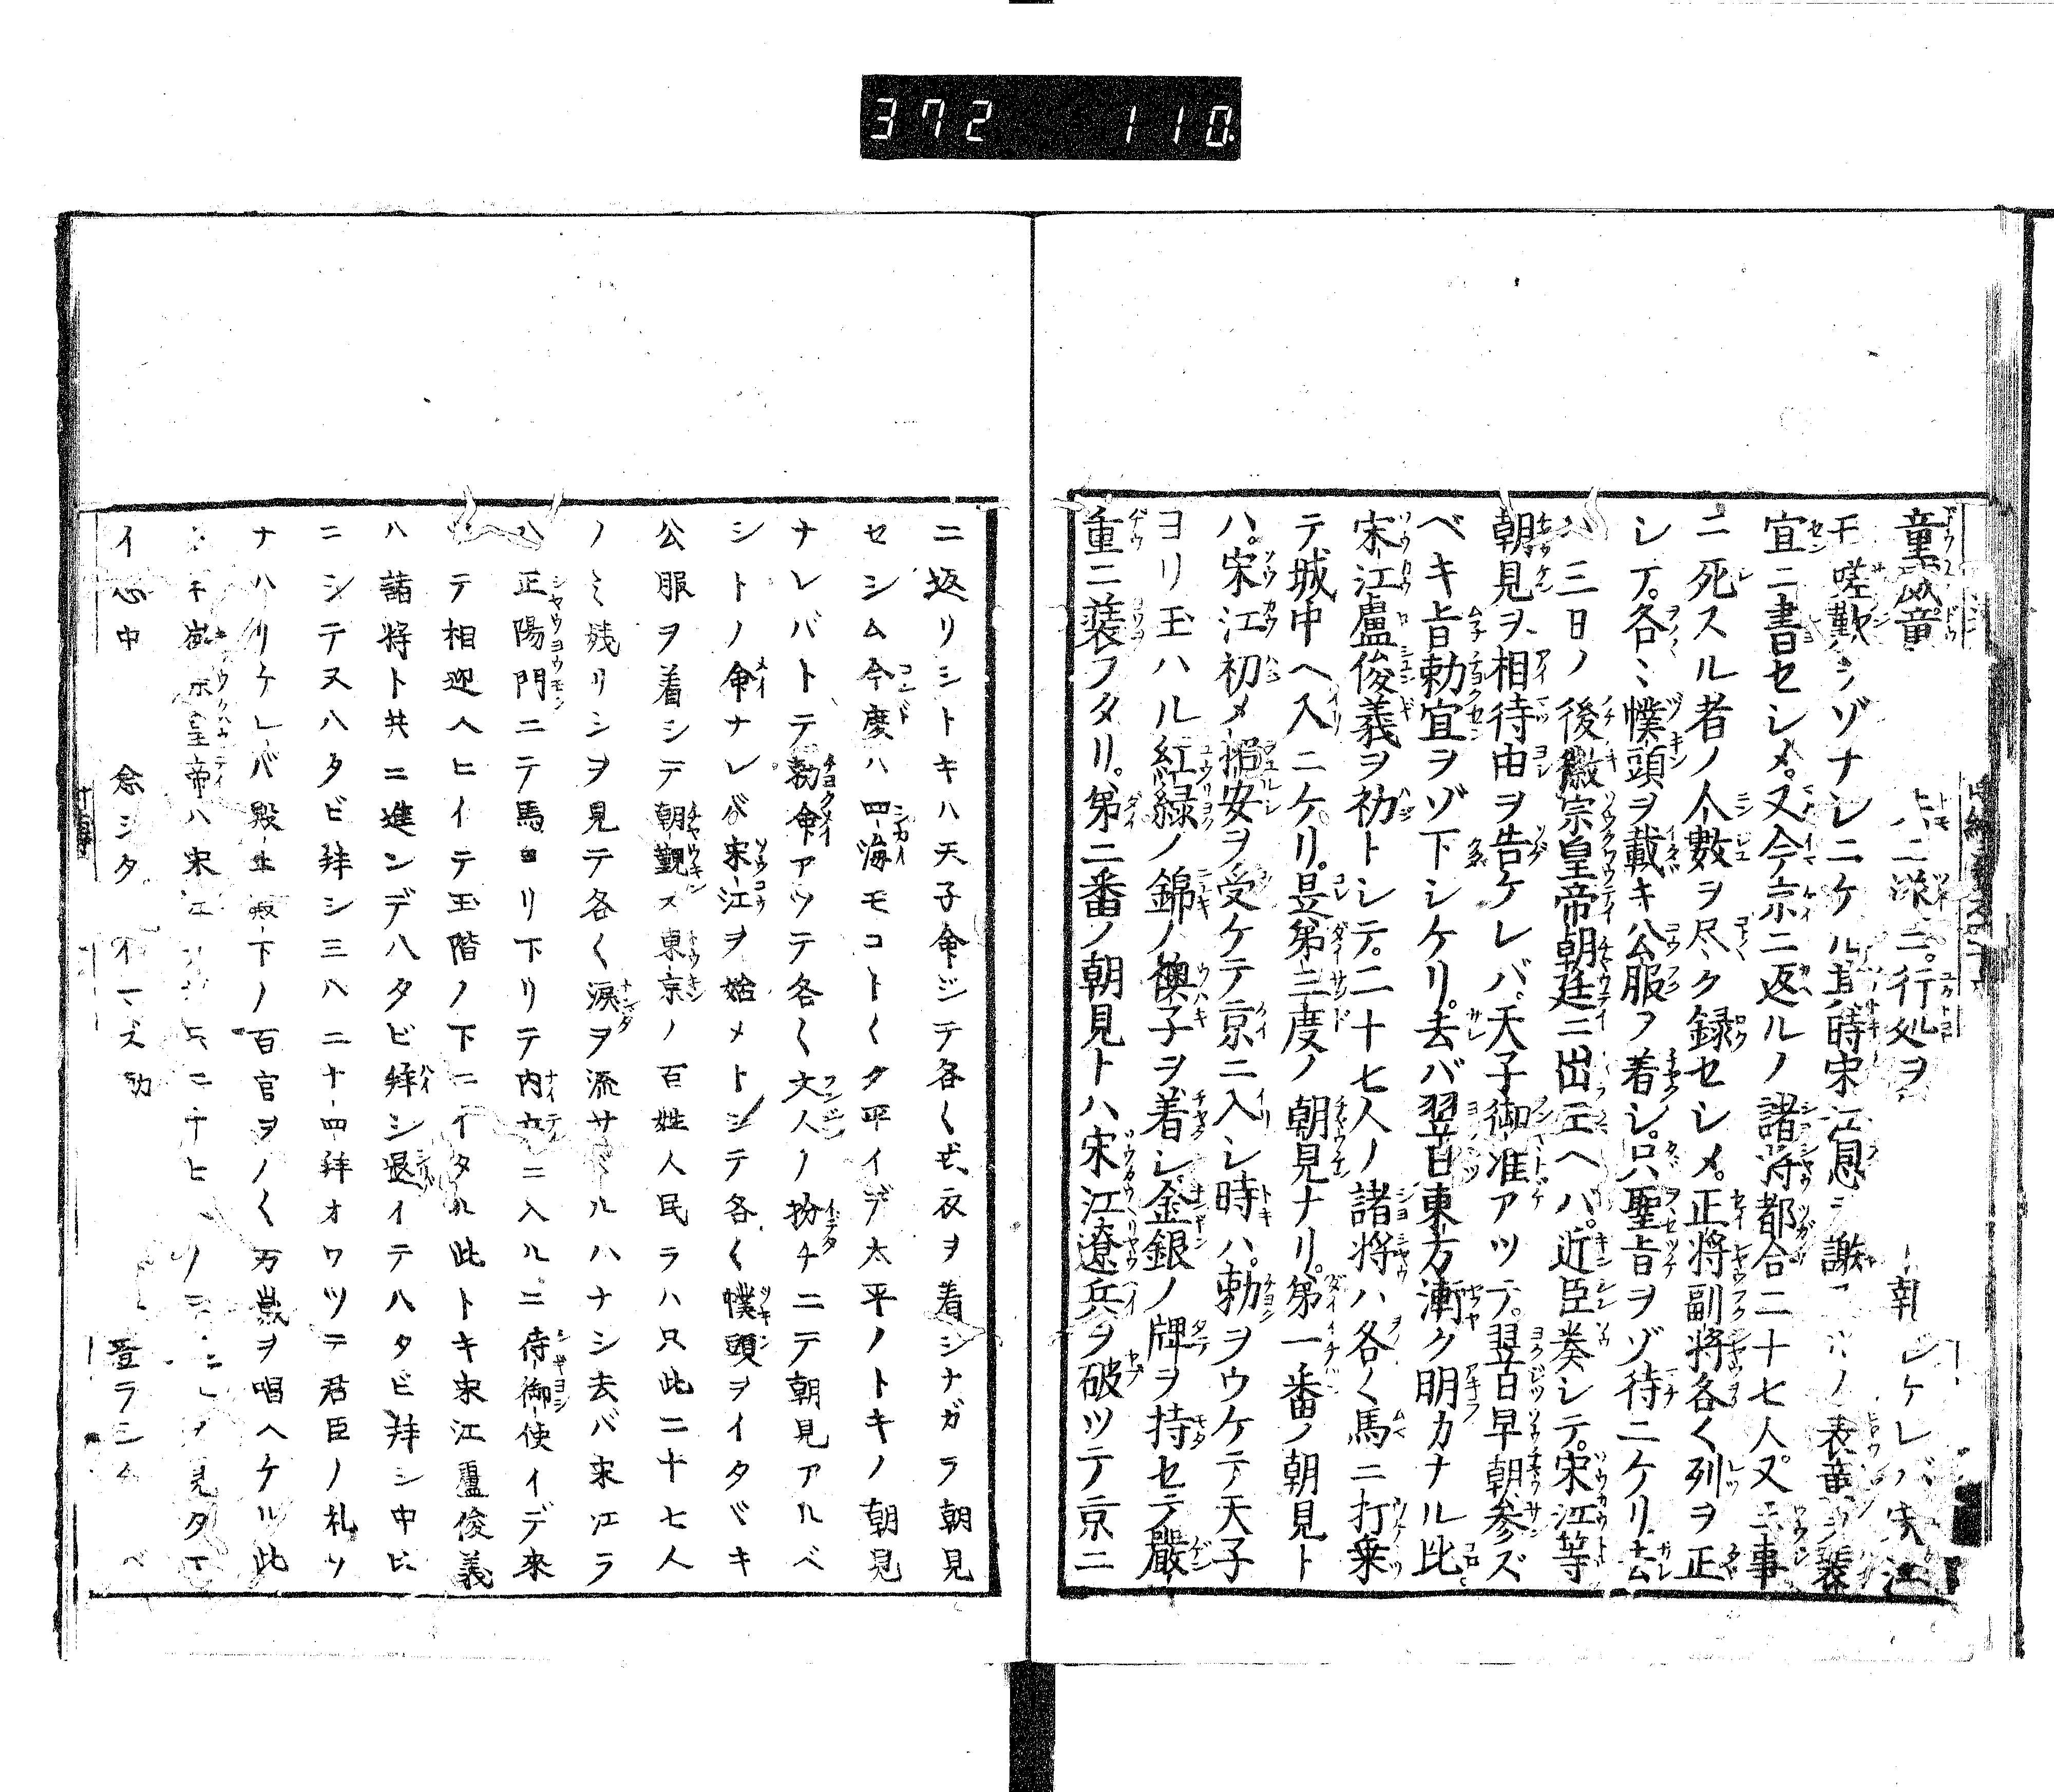 372 110
童威童 ハニ漁ニ。行処ヲ 朝 シケレバ宋江
モ嗟歎シゾナレニケル其時宋江恩ヲ謝 ノ表章ヲ
宣ニ書セシメ。又今京ニ返ルノ諸将都合二十七人又ニ事
ニ死スル者ノ人數ヲ尽ク録セシメ。正将副将各〱列ヲ正
シテ。各〻幞頭ヲ載キ公服フ着シ。只聖旨ヲゾ待ニケリ。去
ハ三日ノ後徽宗皇帝朝廷ニ出エヘバ。近臣奏シテ。宋江等
朝見ヲ相待由ヲ告ケレバ。天子御准アツテ。翌日早朝参ズ
ベキ旨勅宣ヲゾ下シケリ。去バ翌日東方漸ク明カナル比
宋江盧俊義ヲ初トシテ。二十七人ノ諸将ハ各〱馬ニ打乗
テ城中ヘ入ニケリ。是第三度ノ朝見ナリ。第一番ノ朝見ト
ハ。宋江初メ招安ヲ受ケテ京ニ入シ時ハ。勅ヲウケテ天子
ヨリ玉ハル紅緑ノ錦ノ襖子ヲ着シ。金銀ノ牌ヲ持セテ嚴
重ニ裝フタリ。第二番ノ朝見トハ宋江遼兵ヲ破ツテ京ニ
ニ返リシトキハ天子命ジテ各〱戎衣ヲ着シナガラ朝見
セシム今度ハ四海モコト〱ク平イデ太平ノトキノ朝見
ナレバトテ勅命アツテ各〱文人ノ扮チニテ朝見アルベ
シトノ命ナレバ宋江ヲ始メトシテ各〱幞頭ヲイタヾキ
公服ヲ着シテ朝覲ス東京ノ百姓人民ラハ只此二十七人
ノミ残リシヲ見テ各〱涙ヲ流サヾルハナシ去バ宋江ラ
ハ正陽門ニテ馬ヨリ下リテ内 ニ入ルニ侍御使イデ来
ツテ相迎ヘヒイテ玉階ノ下ニイタル此トキ宋江盧俊義
ハ諸将ト共ニ進ンデ八タビ拜シ退イテハタビ拜シ中ヒ
ニシテ又八タビ拜シ三八二十四拜オワツテ君臣ノ礼ツ
ナハリケレバ殿上殿下ノ百官ヲノ〱万歳ヲ唱ヘケル此
皇帝ハ宋江 見タマ
イ心中 念シタ 登ラシメ